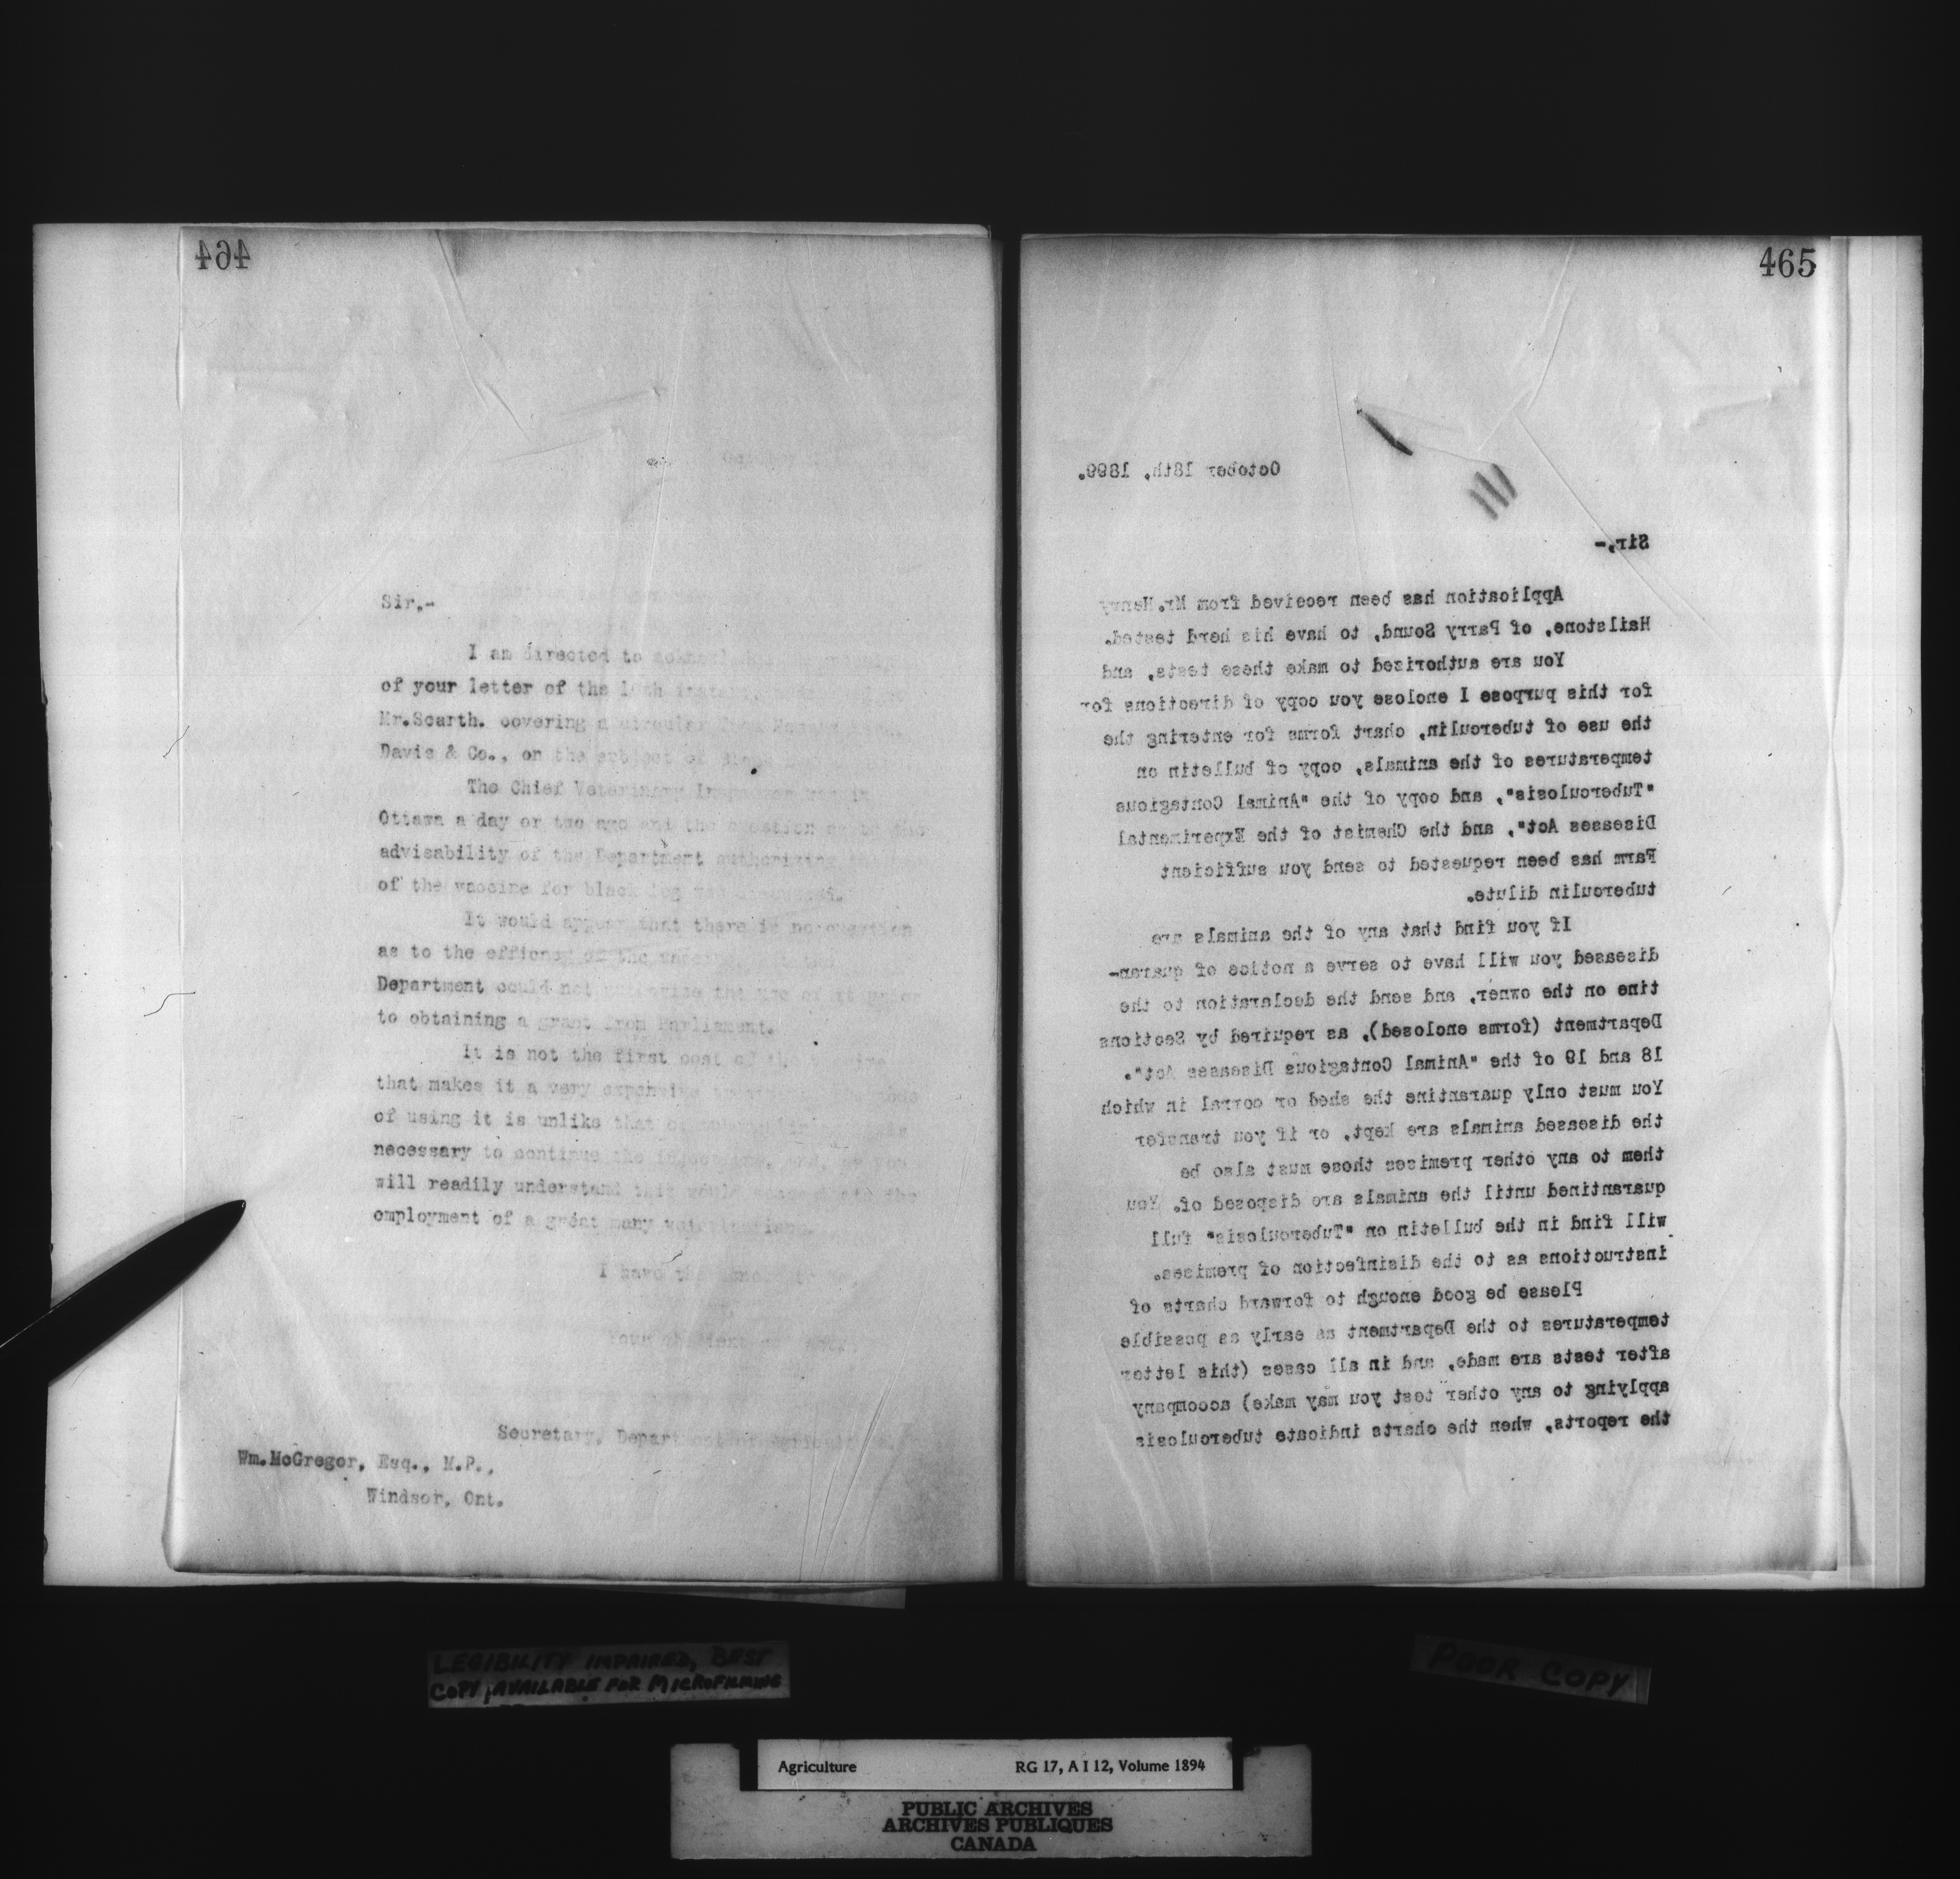 464
Sir,-
I am directed to
of your letter of the
Mr.Scarth. covering a circular from
Davis & Co., on the subject of
The Chief Veterinary Inspector was in
Ottawa a day or two ago and the question as to the
advisability of the Department authorizing
of the vaccine for black leg was discussed.
It would appear that there is no question
as to the efficacy of the vaccine,
Department could not authorize the use of it prior
to obtaining a grant from Parliament.
It is not the first cost of the
that makes it a very expensive
of using it is unlike that of
necessary to continue the injections, and, as you
will readily understand this would the
employment of a great many veterinarians.
I have the honor to
Your obedient
Secretary, Department of Agriculture.
Wm.McGregor, Esq., M.P.,
Windsor, Ont.
465
October 18th, 1899.
Sir,-
Application has been received from Mr.Henry
Hailstone, of Parry Sound, to have his herd tested.
You are authorized to make these tests, and
for this purpose I enclose you copy of directions for
the use of tuberculin, chart forms for entering the
temperatures of the animals, copy of bulletin on
"Tuberculosis", and copy of the "Animal Contagious
Diseases Act", and the Chemist of the Experimental
Farm has been requested to send you sufficient
tuberculin dilute.
If you find that any of the animals are
diseased you will have to serve a notice of quaran-
tine on the owner, and send the declaration to the
Department (forms enclosed), as required by Sections
18 and 19 of the "Animal Contagious Diseases Act".
You must only quarantine the shed or corral in which
the diseased animals are kept, or if you transfer
them to any other premises those must also be
quarantined until the animals are disposed of. You
will find in the bulletin on "Tuberculosis" full
instructions as to the disinfection of premises.
Please be good enough to forward charts of
temperatures to the Department as early as possible
after tests are made, and in all cases (this letter
applying to any other test you may make) accompany
the reports, when the charts indicate tuberculosis
LEGIBILITY IMPAIRED, BEST
COPY AVAILABLE FOR MICROFILMING
POOR COPY
Agriculture RG 17, A I 12, Volume 1894
PUBLIC ARCHIVES
ARCHIVES PUBLIQUES
CANADA